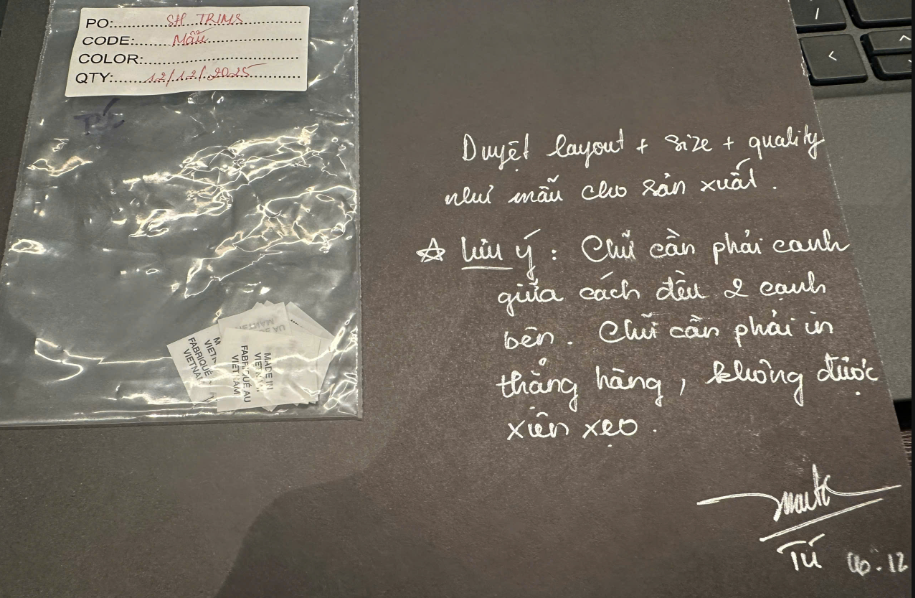 PO: SH TRIMS
CODE: Mẫu
COLOR:
QTY: 12/12/2025
Tú
Duyệt layout + size + quality
như mẫu cho sản xuất.
☆ Lưu ý: Chữ cần phải canh
giữa cách đều 2 cạnh
bên. Chữ cần phải in
thẳng hàng, không được
xiên xẹo.
Tú
FABRIQUÉ
VIETNAM
MADE IN
VIETNAM
FABRIQUÉ AU
VIETNAM